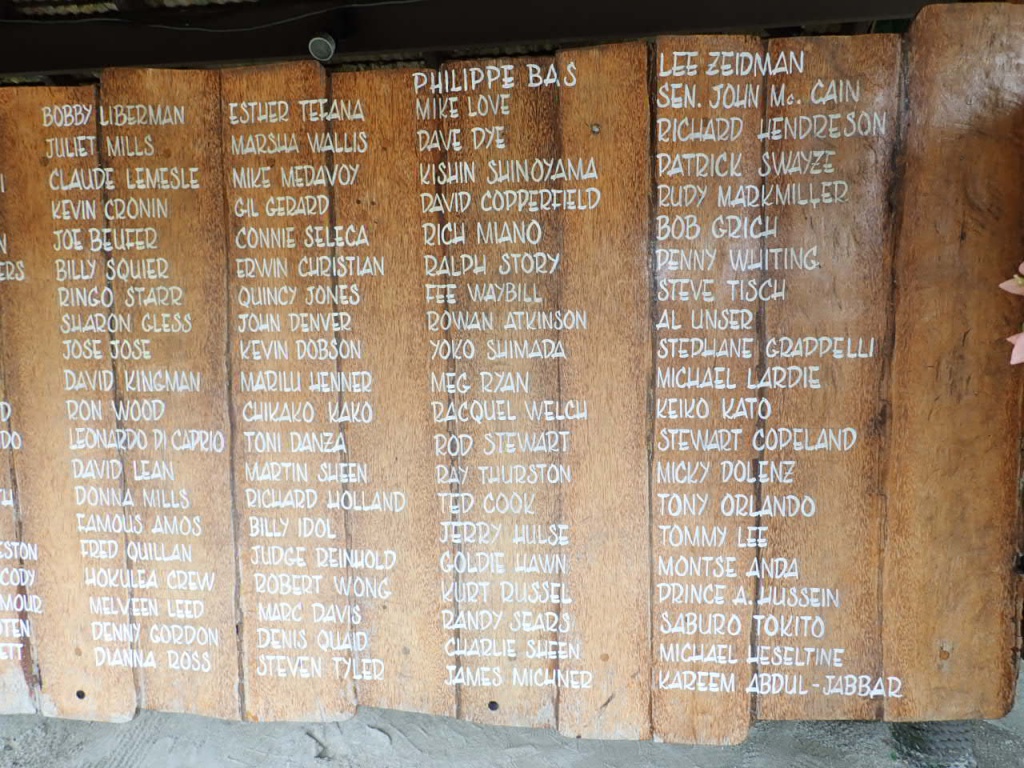 BOBBY LIBERMAN
JULIET MILLS
CLAUDE LEMESLE
KEVIN CRONIN
JOE BEUFER
BILLY SQUIER
RINGO STARR
SHARON GLESS
JOSE JOSE
DAVID KINGMAN
RON WOOD
LEONARDO DI CAPRIO
DAVID LEAN
DONNA MILLS
FAMOUS AMOS
FRED QUILLAN
HOKULEA CREW
MELVEEN LEED
DENNY GORDON
DIANNA ROSS
ESTHER TEHANA
MARSHA WALLIS
MIKE MEDAVOY
GIL GERARD
CONNIE SELECA
ERWIN CHRISTIAN
QUINCY JONES
JOHN DENVER
KEVIN DOBSON
MARILU HENNER
CHIKAKO KAKO
TONI DANZA
MARTIN SHEEN
RICHARD HOLLAND
BILLY IDOL
JUDGE REINHOLD
ROBERT WONG
MARC DAVIS
DENIS QUAID
STEVEN TYLER
PHILIPPE BAS
MIKE LOVE
DAVE DYE
KISHIN SHINOYAMA
DAVID COPPERFIELD
RICH MIANO
RALPH STORY
FEE WAYBILL
ROWAN ATKINSON
YOKO SHIMADA
MEG RYAN
RACQUEL WELCH
ROD STEWART
RAY THURSTON
TED COOK
JERRY HULSE
GOLDIE HAWN
KURT RUSSEL
RANDY SEARS
CHARLIE SHEEN
JAMES MICHNER
LEE ZEIDMAN
SEN. JOHN Mc. CAIN
RICHARD HENDRESON
PATRICK SWAYZE
RUDY MARKMILLER
BOB GRICH
PENNY WHITING
STEVE TISCH
AL UNSER
STEPHANE GRAPPELLI
MICHAEL LARDIE
KEIKO KATO
STEWART COPELAND
MICKY DOLENZ
TONY ORLANDO
TOMMY LEE
MONTSE ANDA
PRINCE A. HUSSEIN
SABURO TOKITO
MICHAEL HESELTINE
KAREEM ABDUL-JABBAR